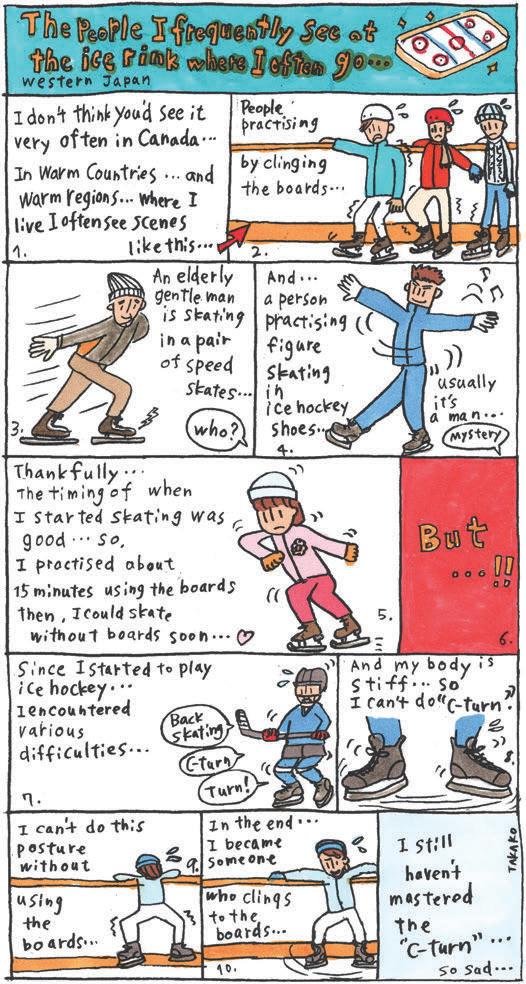 The People I frequently see at
the ice rink where I often go...
Western Japan
I don't think you'd see it
very often in Canada...
In Warm Countries... and
Warm regions... where I
live I often see scenes
like this...
1.
People
practising
by clinging
the boards...
2.
An elderly
gentleman
is skating
in a pair
of speed
skates...
who?
3.
And...
a person
practising
figure
skating
in
ice hockey
shoes...
usually
it's
a man...
Mystery
4.
Thankfully...
The timing of when
I started skating was
good... so,
I practised about
15 minutes using the boards
then, I could skate
without boards soon...
5.
But
...!!
6.
Since I started to play
ice hockey...
I encountered
various
difficulties...
Back
skating
C-turn
Turn!
7.
And my body is
stiff... so
I can't do "C-turn".
8.
I can't do this
posture
without
using
the
boards...
9.
In the end...
I became
someone
who clings
to the
boards...
10.
I still
haven't
mastered
the
"C-turn"...
so sad...
TAKAKO